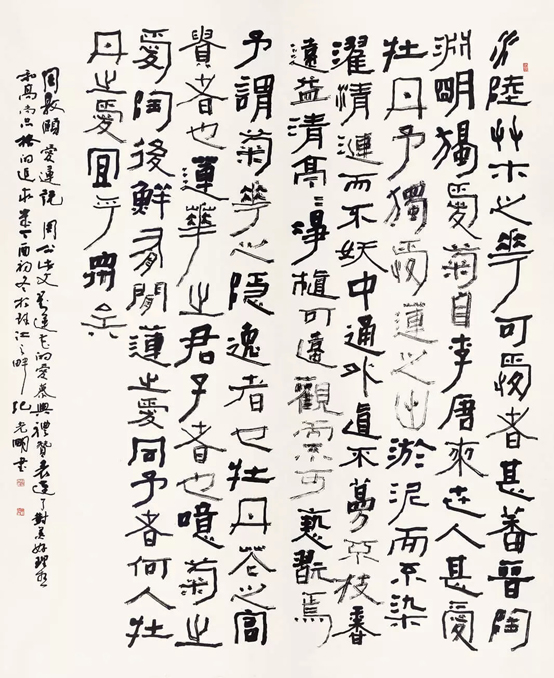 水陸艸木之華可愛者甚蕃晉陶
淵明獨愛菊自李唐來世人甚愛
牡丹予獨愛蓮之出淤泥而不染
濯清漣而不妖中通外直不蔓不枝香
遠益清亭〻淨植可遠觀而不可褻翫焉
予謂菊華之隱逸者也牡丹花之富
貴者也蓮華之君子者也噫菊之
愛陶後鮮有聞蓮之愛同予者何人牡
丹之愛宜乎眾矣
周敦頤愛蓮說 周公此文 蓮花的愛慕與禮贊表達了對美好理想
和高尚品格的追求 歲丁酉初冬於珠江之畔 紀光明書